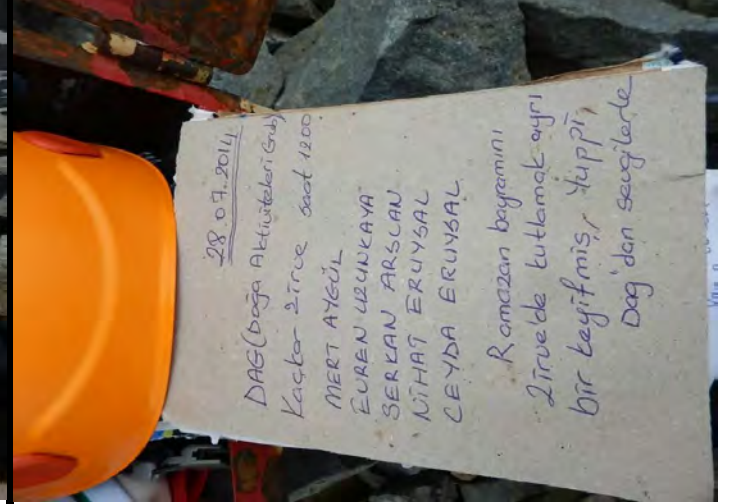 28.07.2014
DAG (Doğa Aktiviteleri Grub)
Kaçkar Zirve saat 1200
MERT AYGÜL
EVREN UZUNKAYA
SERKAN ARSLAN
NİHAT ERUYSAL
CEYDA ERUYSAL
Ramazan bayramını
Zirve'de kutlamak ayrı
bir keyifmiş, Yuppi,
Dağ'dan sevgilerle